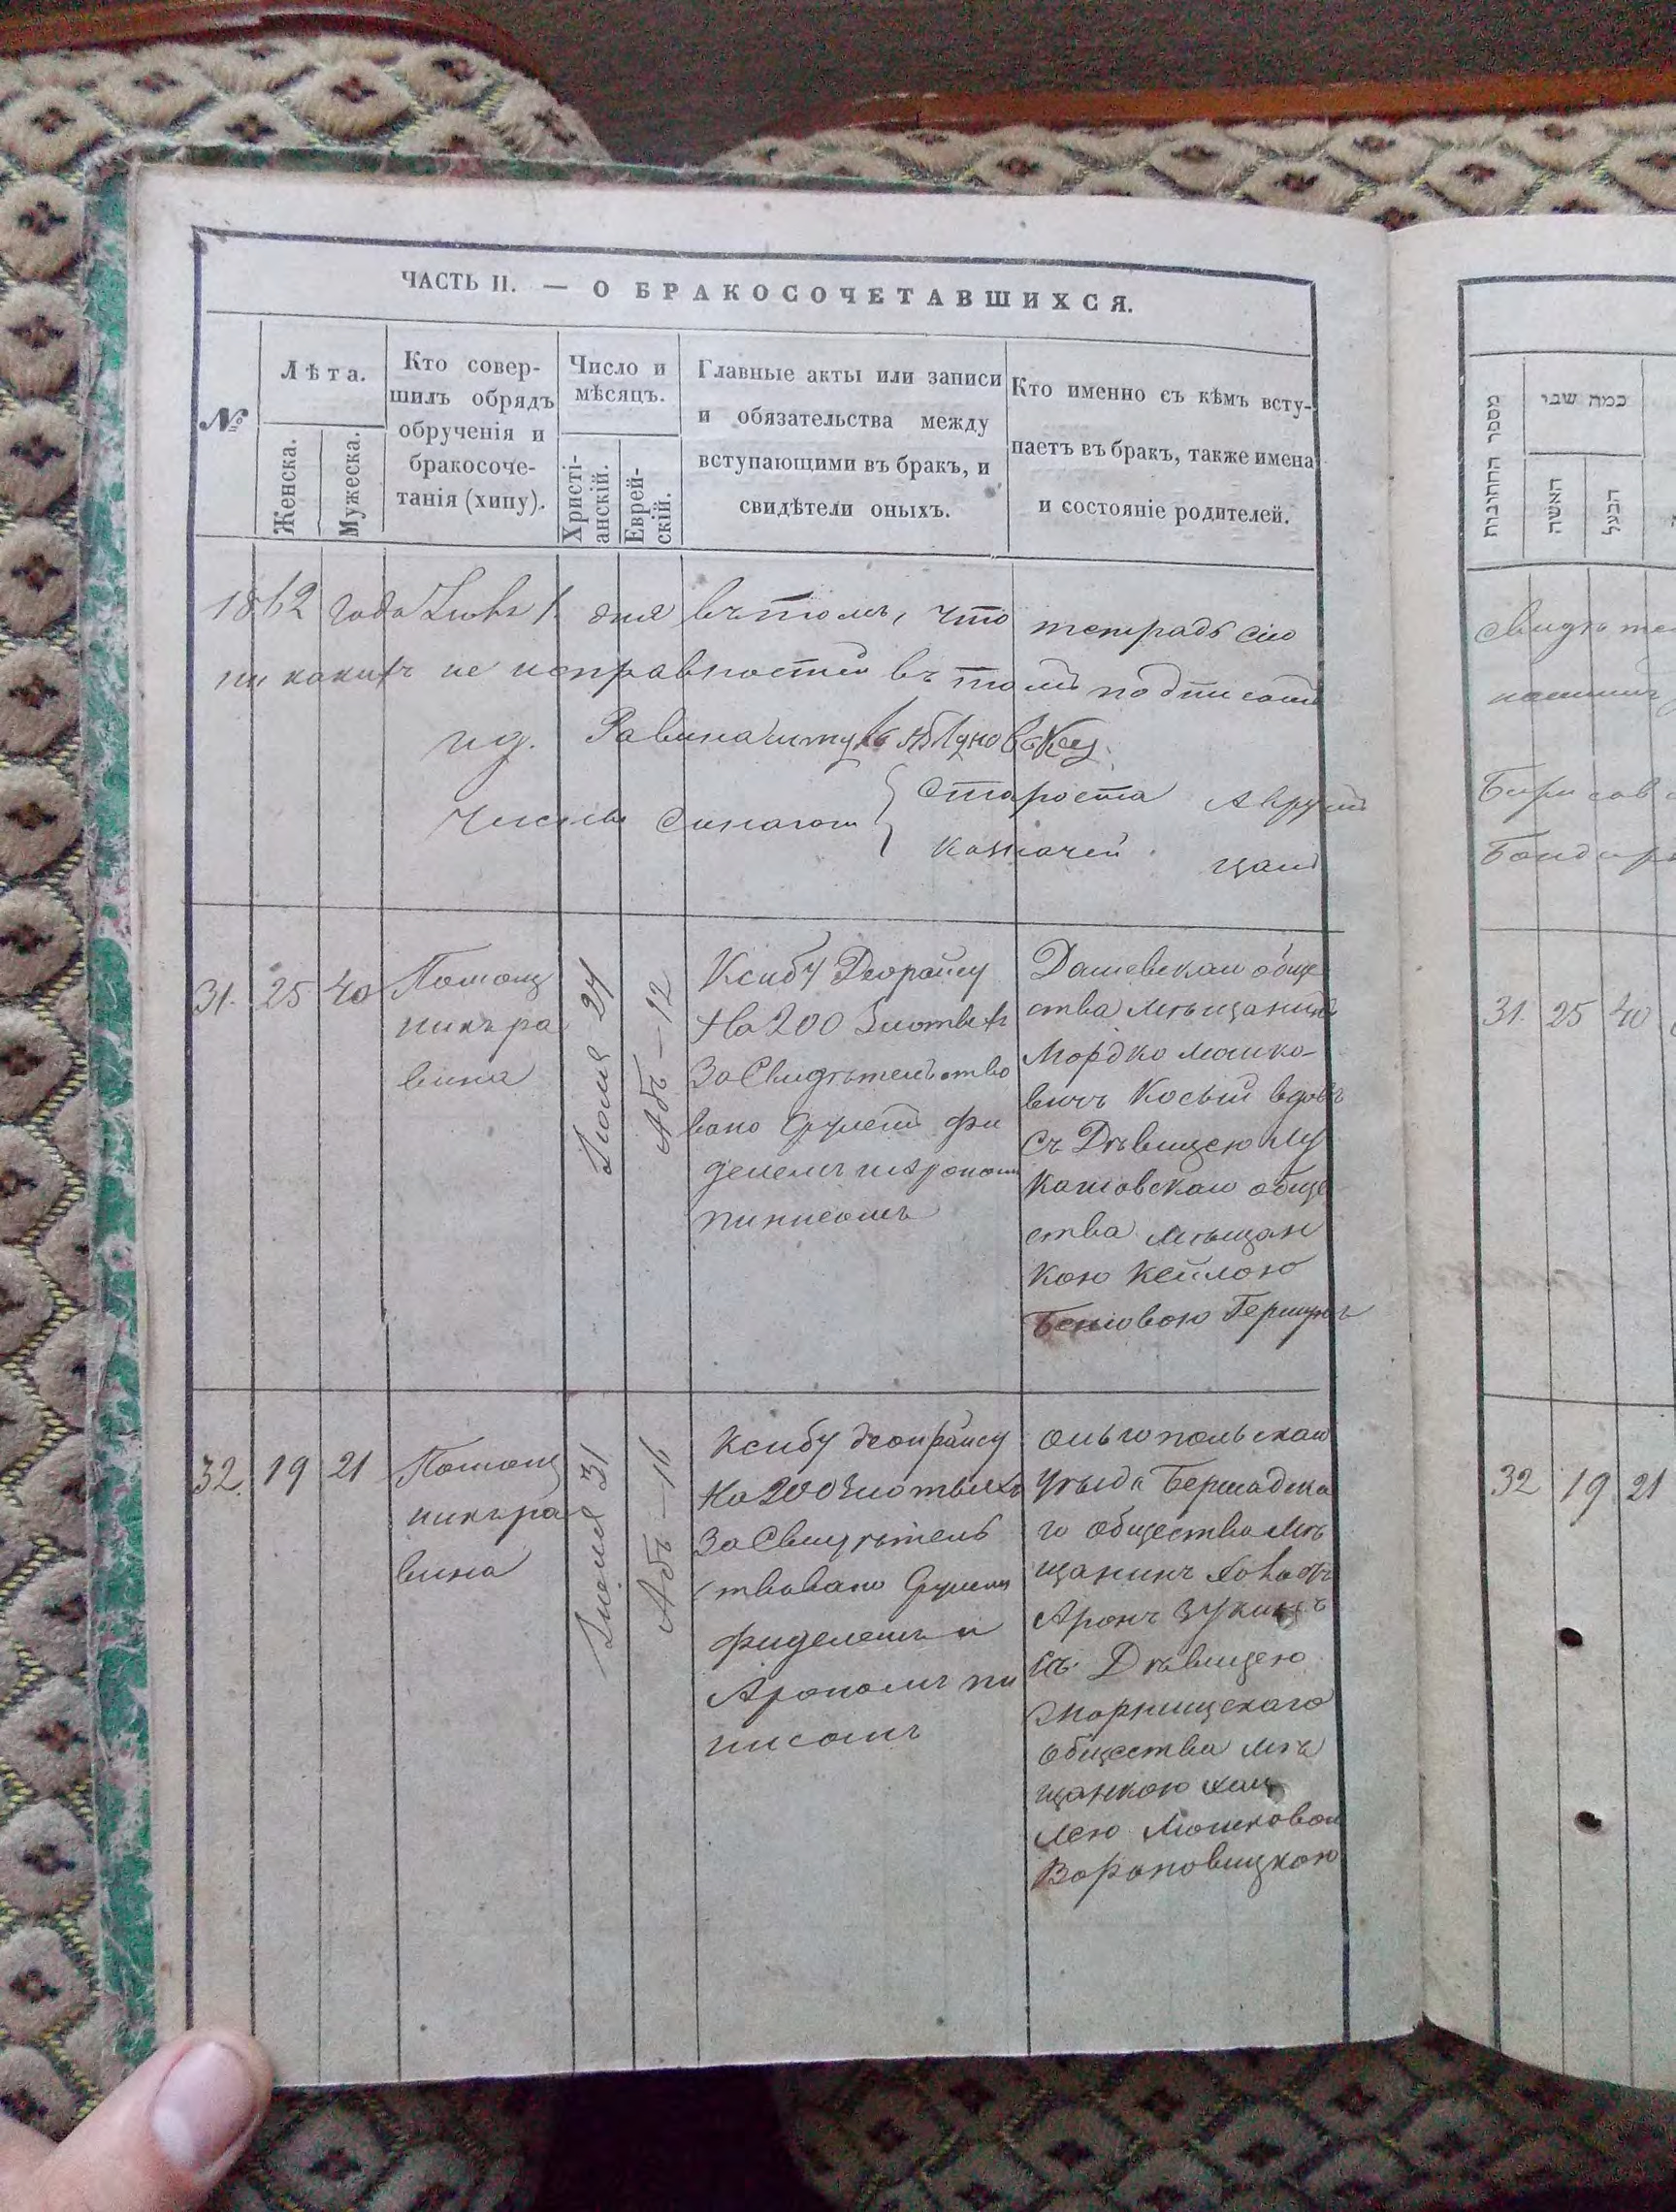 ЧАСТЬ II. — О БРАКОСОЧЕТАВШИХСЯ.
№
Лѣта.
Женска.
Мужеска.
Кто совер-
шилъ обрядъ
обрученія и
бракосоче-
танія (хипу).
Число и
мѣсяцъ.
Христі-
анскій.
Еврей-
скій.
Главные акты или записи
и обязательства между
вступающими въ бракъ, и
свидѣтели оныхъ.
Кто именно съ кѣмъ всту-
паетъ въ бракъ, также имена
и состояніе родителей.
1862 года 1 дня въ томъ, что тетрадь сію
ни какихъ не исправностей въ томъ подписомъ
ид. Равина
Члены синагоги
Староста
Казначей
31. 25 40
Помощ
никъ ра
вина
Іюля 24
Абъ — 12
Ксибу Деорайсу
На 200 Злотыхъ
За Свидѣтельство
вано Срулемъ Фи
делемъ и Арономъ
пинисомъ
Дашевскаго обще
ства мѣщанинъ
Мордко Мошко-
вичъ Косый вдовъ
Съ Дѣвицею Лу
кашовскаго обще
ства мѣщан
кою Кейлою
Бенцовою
32. 19 21
Помощ
никъ ра
вина
Іюля 31
Абъ — 16
Ксибу деорайсу
На 200 Злотыхъ
За Свидѣтель
ствовано Срулемъ
фиделемъ и
Арономъ пи
нисомъ
Ольгопольскаго
Уѣзда Бершадска
го общества мѣ
щанинъ
Аронъ
съ Дѣвицею
общества мѣ
щанкою
лею Мошковою
Вороновицкою
מספר החתונות
כמה שני
האשה
הבעל
31. 25 40
32 19 21